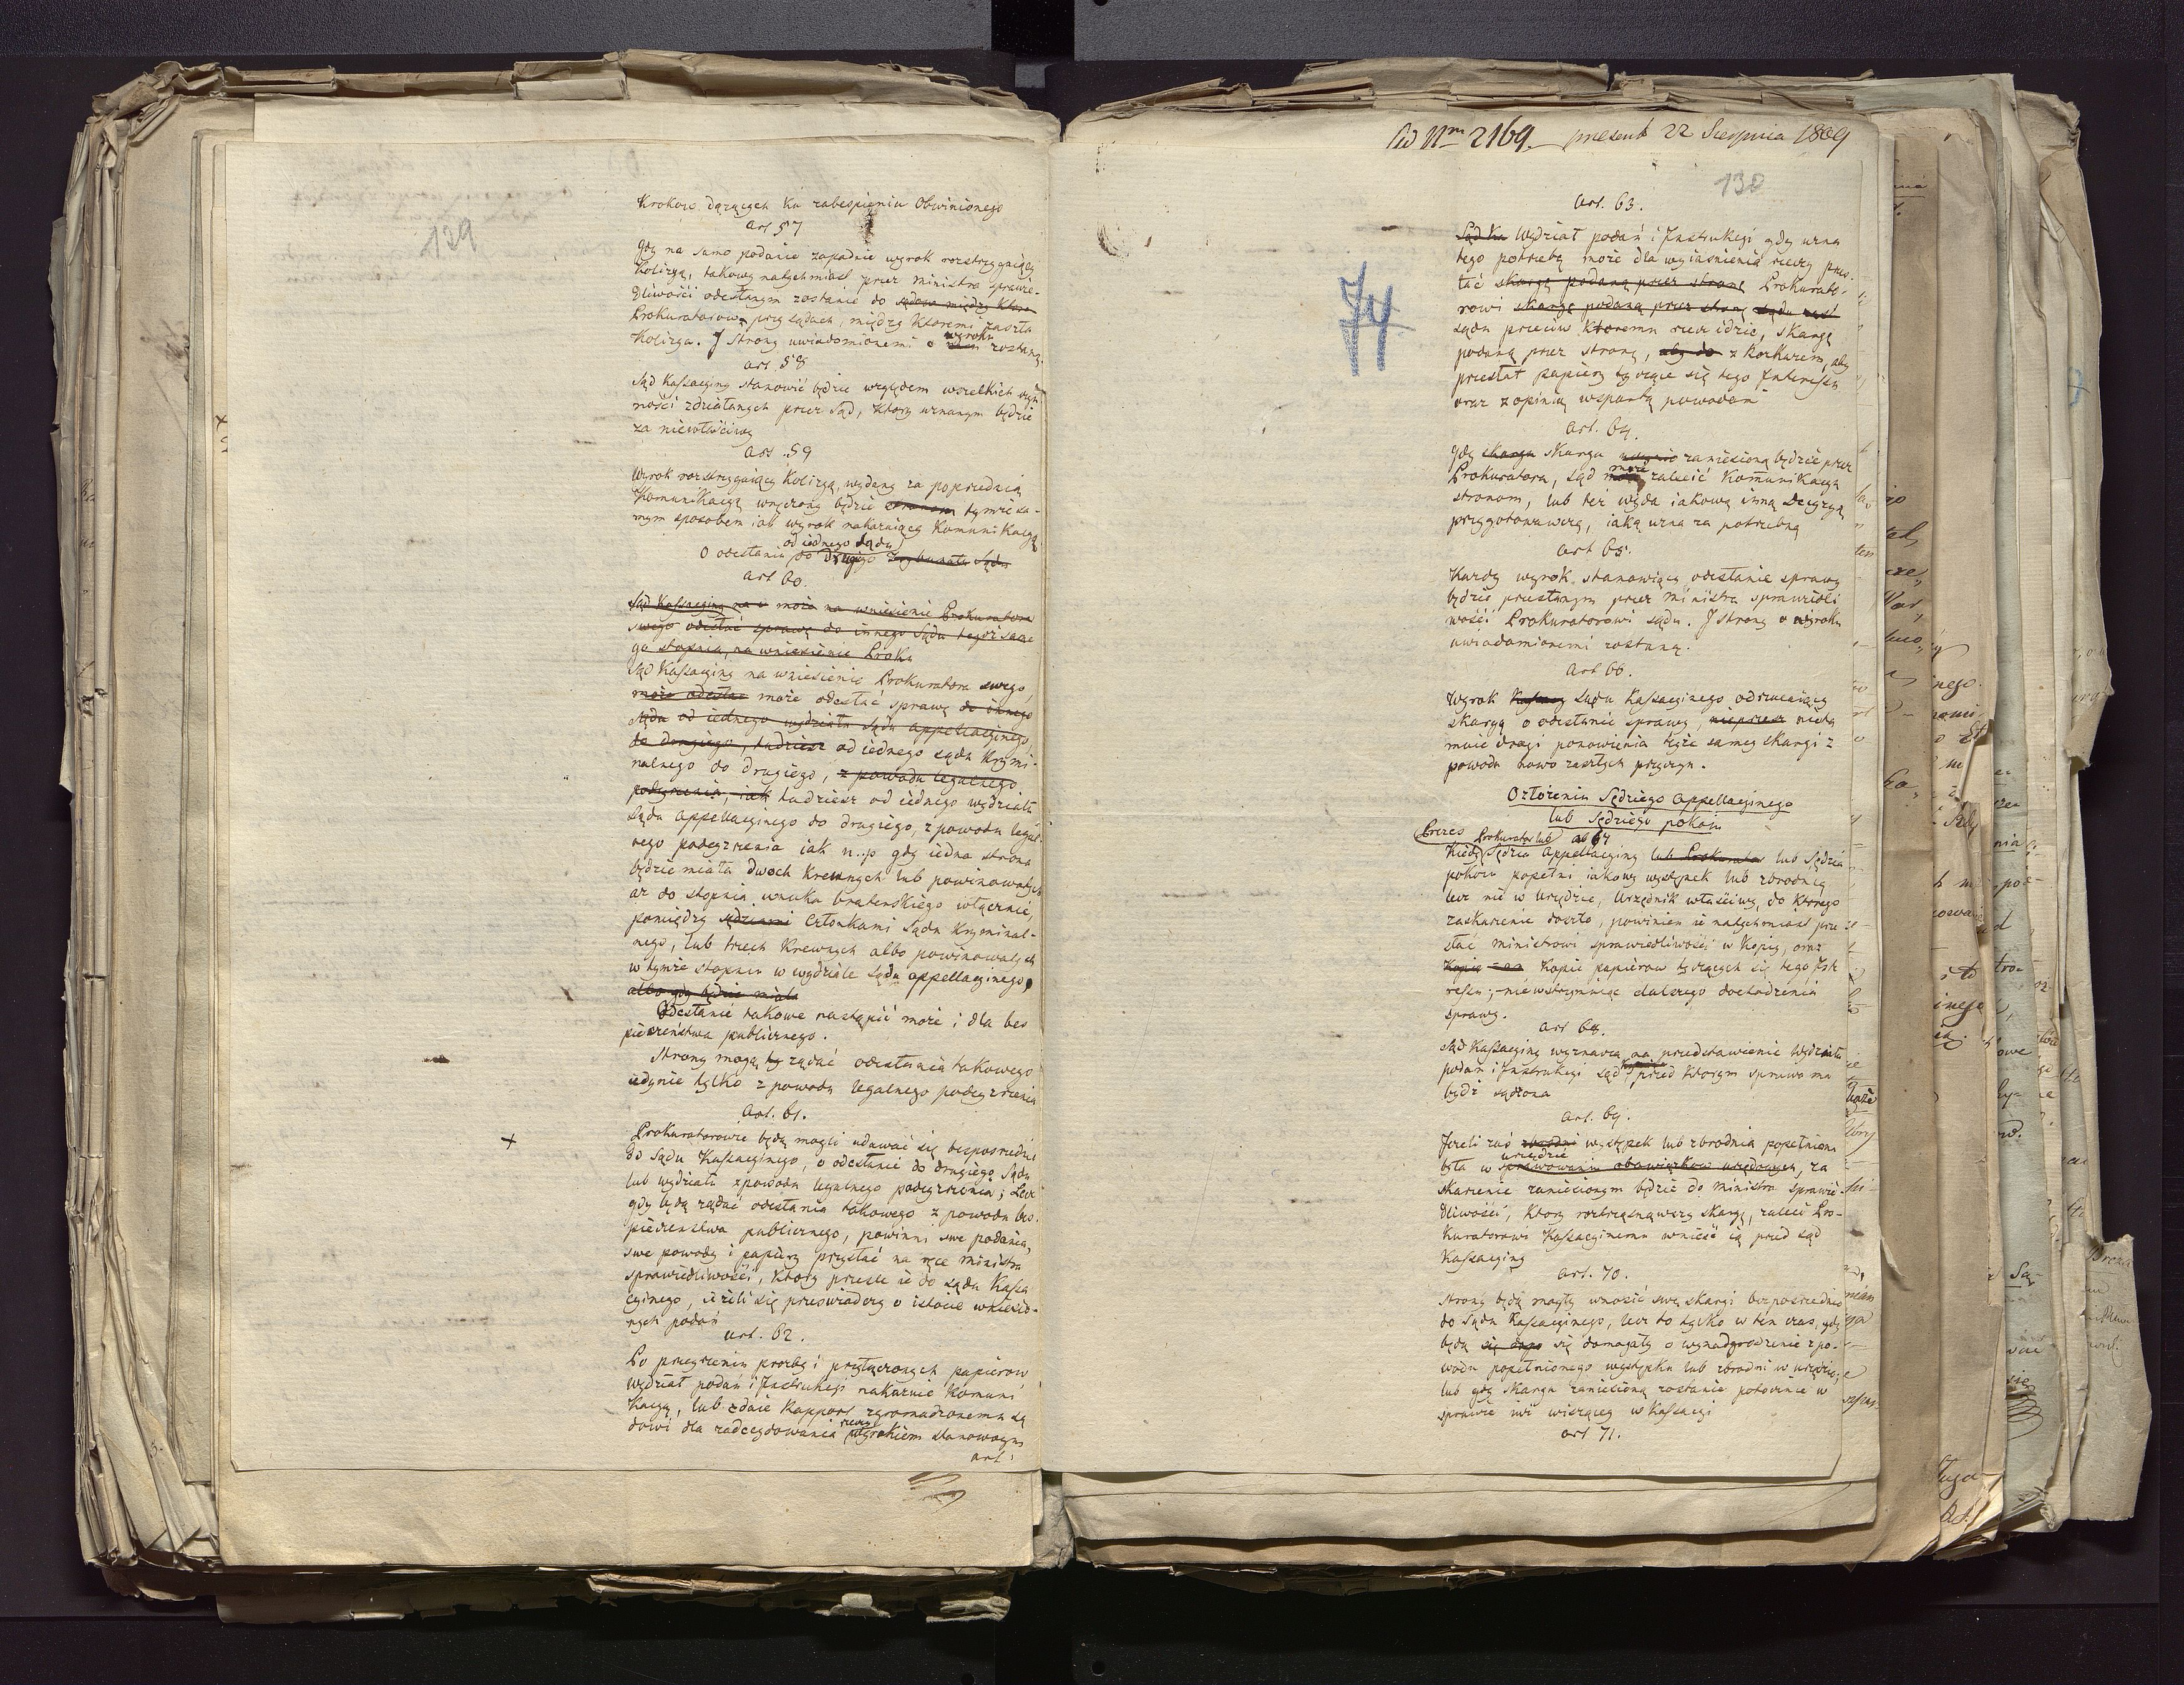 129
Krokow dążących ku zabespieczeniu Obwinionego
art 57
Gdy na samo podanie zapadnie wyrok rozstrzygaiący
Kolizyą, takowy natychmiast przez ministra sprawie-
dliwości odesłanym zostanie do sądowa między ktore
Prokuratorow przy sądach, między ktoremi zaszła
Kolizya. I strony uwiadomionemi o wyroku zostaną
art. 58
Sąd Kassacyiny stanowić będzie względem wszelkich czyn
ności zdziałanych przez Sąd, ktory uznanym będzie
za niewłaściwy
art. 59
Wyrok rozstrzygaiący Kolizyą, wydany za poprzednią
Komunikacyą wręczony będzie stronom tymże sa-
mym sposobem iak wyrok nakazuiący Komunikacyą
O odesłaniu od iednego Sądu do drugiego Trybunału Sądu
art 60.
Sąd Kassacyiny na w może na wniesienie Prokuratora
swego odesłać sprawę do innego Sądu tegoż same
go stopnia, na wniesienie Proku
Sąd Kassacyiny na wniesienie Prokuratora swego,
może odesłać może odesłać sprawę do innego
sądu od iednego wydziału sądu appellacyinego
do drugiego, tudziesz od iednego sądu krymi-
nalnego do drugiego, z powodu legalnego
podeyrzenia, iak tudziesz od iednego wydziału
Sądu appellacyinego do drugiego, z powodu legal-
nego podeyrzenia iak n..p gdy iedna strona
będzie miała dwoch krewnych lub powinowatych
aż do stopnia wnuka braterskiego włącznie,
pomiędzy sędziami Członkami Sądu Kryminal-
nego, lub trzech krewnych albo powinowatych
w tymże stopniu w wydziale sądu appellacyinego,
albo gdy będzie miała
Odesłanie takowe nastąpić może i dla bes
pieczeństwa publicznego.
Strony mogą ty żądać odesłania takowego
iedynie tylko z powodu legalnego podeyrzenia
art. 61.
+
Prokuratorowie będą mogli udawać się bezposrednio
do Sądu Kassacyinego, o odesłanie do drugiego Sądu
lub wydziału z powodu legalnego podeyrzenia; Lecz
gdy będą żądać odesłania takowego z powodu bes-
pieczenstwa publicznego, powinni swe podania,
swe powody i papiery przysłać na ręce ministra
sprawiedliwości, ktory przesle ie do sądu Kassa
cyinego, ieżeli się przeswiadczy o istocie wniesio-
nych podań
art. 62.
Po przeyrzeniu prozby i przyłączonych papierow
wydział podań i Instrukcyi nakazuie Komuni
kacyą, lub zdaie Rapport zgromadzonemu Są
dowi dla zadecydowania rzeczy wyrokiem stanowczym
art.
Ad Nrm 2169. present 22 Sierpnia 1809
130
74
art. 63.
Sąd Ka Wydział podań i Instrukcyi gdy uzna
tego potrzebę może dla wyiasnienia rzeczy prze-
słać skargę podaną przez stronę Prokurato-
rowi skargę podaną przez stronę sądu zast
sądu przeciw ktoremu rzecz idzie, skargę
podaną przez stronę, aby do z Rozkazem, aby
przesłał papiery tyczące się tego Interessu
oraz z opinią wspartą powodem
art. 64.
gdy skarga skarga zaniesioną będzie przez
Prokuratora, sąd może zalecić Komunikacyą
stronom, lub też wyda iakową inną Decyzyą
przygotowawczą, iaką uzna za potrzebną
art 65.
Każdy wyrok stanowiący odesłanie sprawy
będzie przesłanym przez ministra sprawiedli
wości Prokuratorowi sądu. I strony o wyroku
uwiadomionemi zostaną.
art 66.
Wyrok Kassacy sądu Kassacyinego odrzucaiący
skargę o odesłanie sprawy, nieprzesz nieta
muie drogi ponowienia teyże samey skargi z
powodu nowo zaszłych przyczyn.
O złożeniu Sędziego appellacyinego
lub Sędziego pokoiu
art 67
Prezes Prokurator lub
Kiedy Sędzia appellacyiny lub Prokurator lub Sędzia
pokoiu popełni iakowy występek lub zbrodnią
lecz nie w urzędzie, Urzędnik właściwy, do ktorego
zaskarżenie doszło, powinien ie natychmiast prze
słać ministrowi sprawiedliwości w Kopiy, oraz
Kopie oraz Kopie papierow tyczących się tego Inte
ressu; nie wstrzymuiąc dalszego dochodzenia
sprawy.
art 68.
Sąd Kassacyiny wyznacza na przedstawienie Wydziału
podań i Instrukcyi sąd przed ktorym sprawa ma
bydź sądzona
art. 69.
Jeżeli zaś występek lub zbrodnia popełniona
była w urzędzie sprawowaniu obowiązkow urzędowych, za
skarżenie zaniesionym będzie do ministra sprawie
dliwości, ktory roztrząsnąwszy skargę, zaleci Pro-
kuratorowi Kassacyinemu wnieść ią przed sąd
Kassacyiny
art. 70.
Strony będą mogły wnosić swe skargi bezposrednio
do Sądu Kassacyinego, lecz to tylko w ten czas, gdy
będą się dopo się domagały o wynadgrodzenie z po-
wodu popełnionego występku lub zbrodni w urzędzie,
lub gdy skarga zaniesioną zostanie potocznie w
sprawie iuż wiszącey w Kassacyi
art 71.